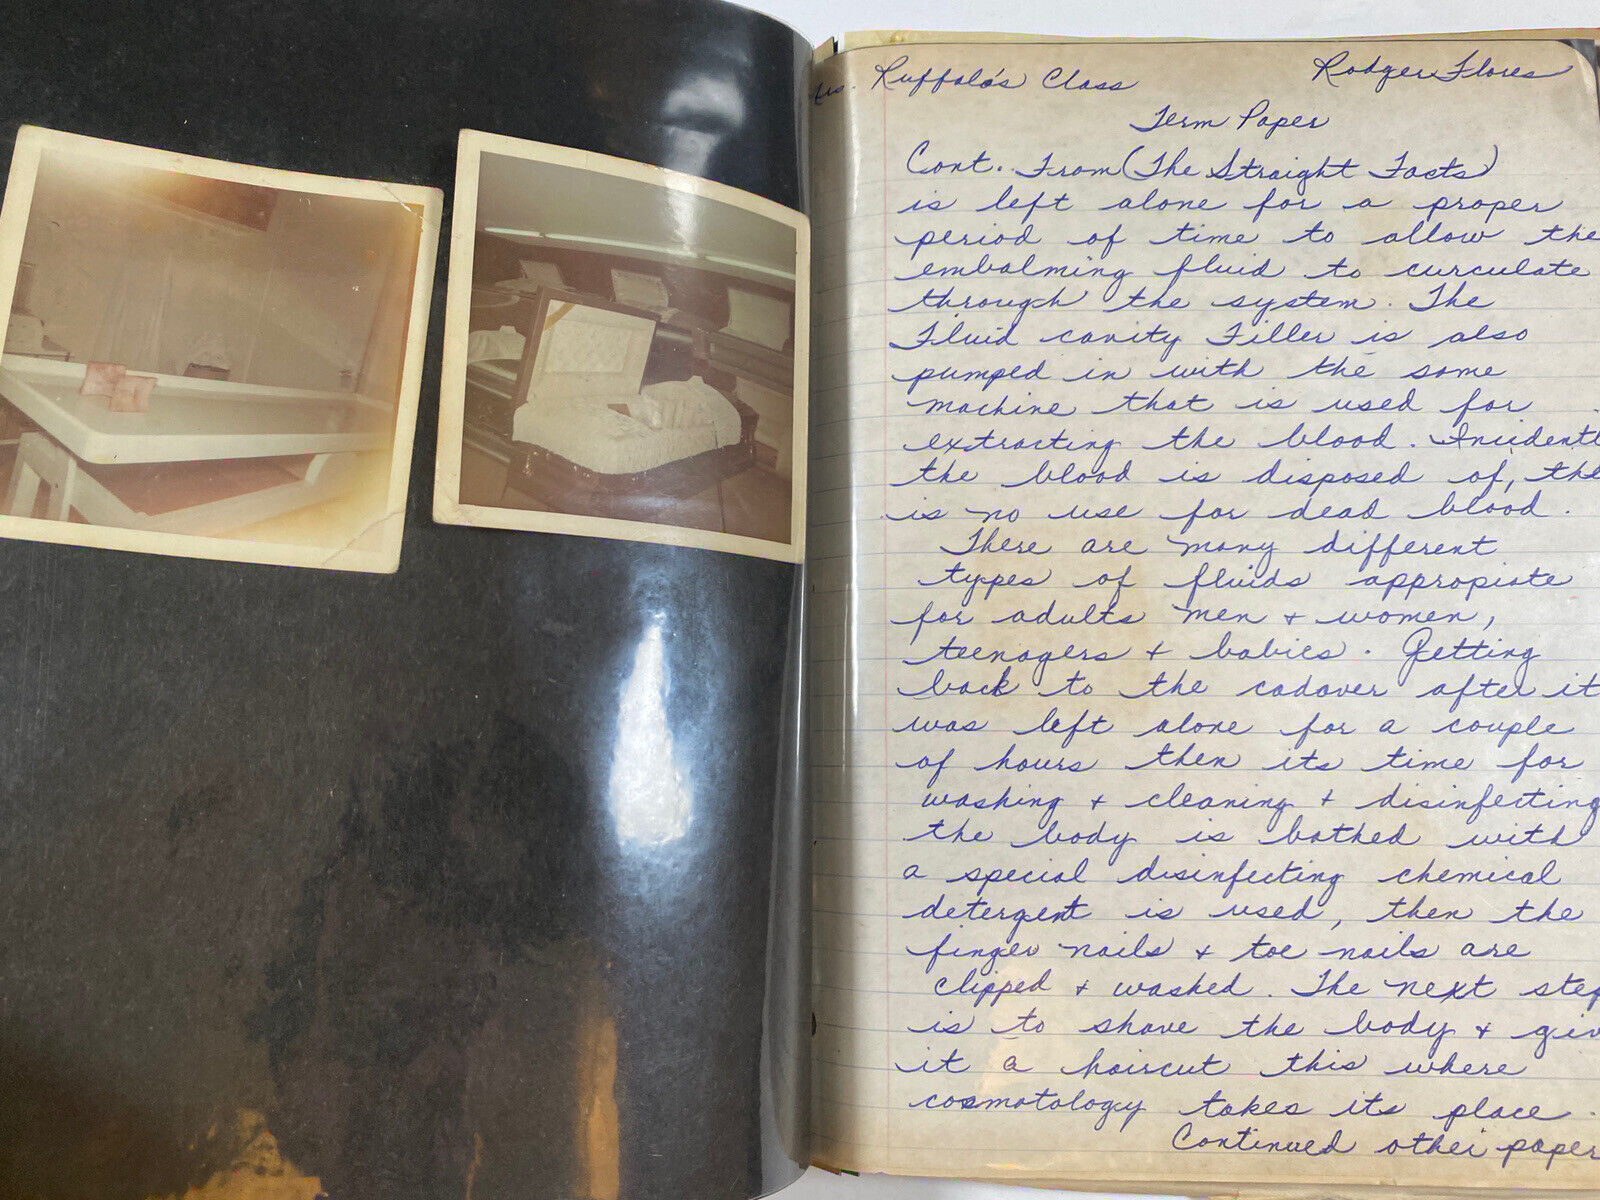 Mrs. Ruffalo's Class
Rodger Flores
Term Paper
Cont.. From (The Straight Facts)
is left alone for a proper
period of time to allow the
embalming fluid to curculate
through the system. The
Fluid cavity Filler is also
pumped in with the same
machine that is used for
extracting the blood. Incidentl
the blood is disposed of, the
is no use for dead blood.
There are many different
types of fluids appropiate
for adults men + women,
teenagers + babies. Getting
back to the cadaver after it
was left alone for a couple
of hours then its time for
washing + cleaning + disinfecting
the body is bathed with
a special disinfecting chemical
detergent is used, then the
finger nails + toe nails are
clipped + washed. The next step
is to shave the body + giv
it a haircut this where
cosmotology takes its place.
Continued other paper